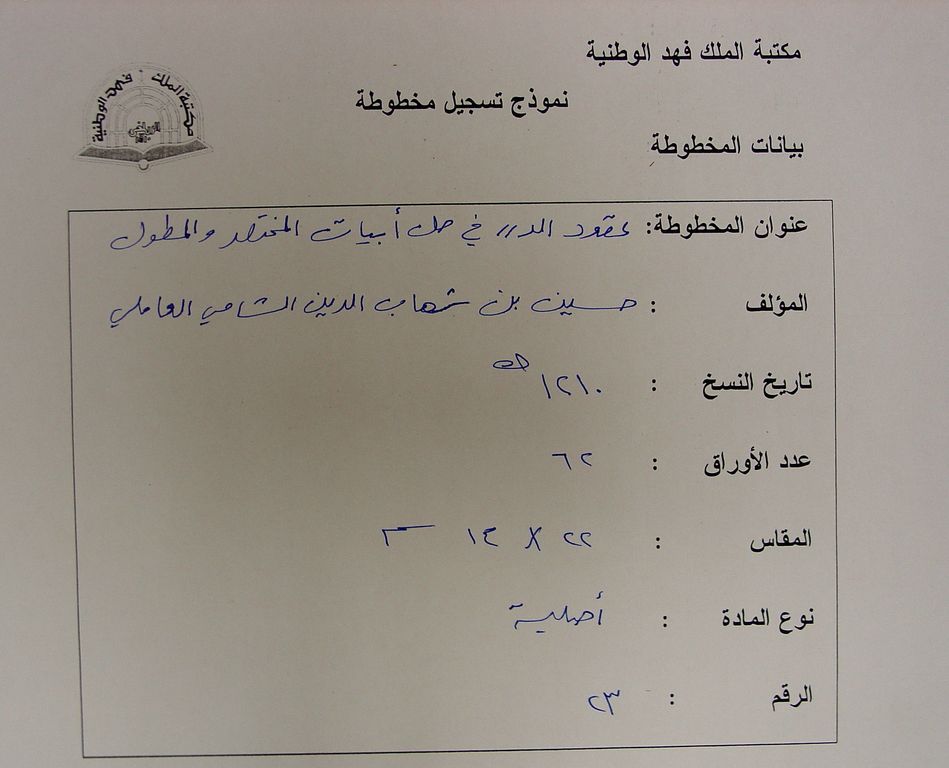 مكتبة الملك فهد الوطنية
نموذج تسجيل مخطوطة
مكتبة الملك فهد الوطنية
الرياض
بيانات المخطوطة
عنوان المخطوطة: عقود الدرر في حل أبيات المختصر والمطول
المؤلف : حسين بن شهاب الدين الشامي العاملي
تاريخ النسخ : ١٢١٠ هـ
عدد الأوراق : ٦٢
المقاس : ٢٢ X ١٤ سم
نوع المادة : أصلية
الرقم : ٢٣